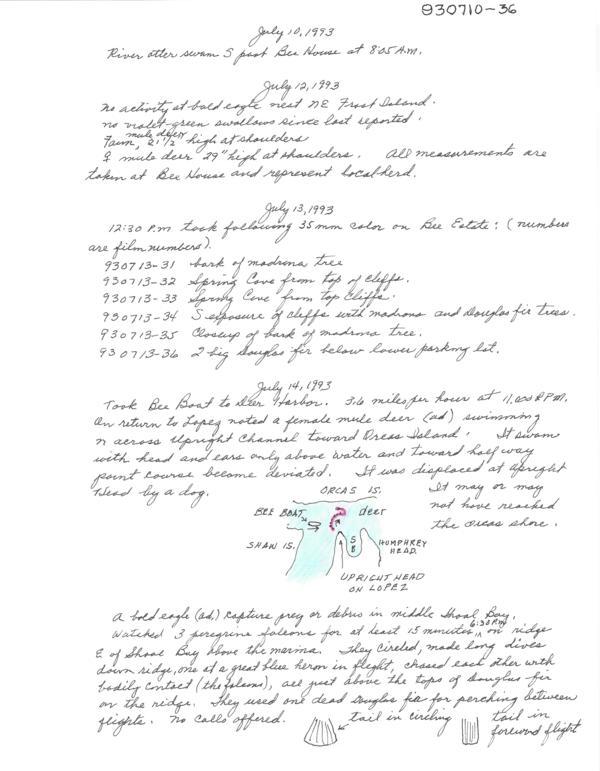 930710-36
July 10, 1993
River otter swam S past Bee House at 8:05 A.M.
July 12, 1993
No activity at bald eagle nest NE Frost Island.
No violet-green swallows since last reported.
Fawn, mule deer, 21 1/2" high at shoulders
♀ mule deer 29" high at shoulders. All measurements are
taken at Bee House and represent local herd.
July 13, 1993
12:30 P.m took following 35 mm color on Bee Estate: (numbers
are film numbers).
930713-31 bark of madrona tree
930713-32 Spring Cove from top of cliffs.
930713-33 Spring Cove from top cliffs.
930713-34 S exposure of cliffs with madrona and Douglas fir trees.
930713-35 Closeup of bark of madrona tree.
930713-36 2 big Douglas fir below lower parking lot.
July 14, 1993
Took Bee Boat to Deer Harbor. 36 miles per hour at 11,000 RPM.
On return to Lopez noted a female mule deer (ad) swimming
N across Upright Channel toward Orcas Island. It swam
with head and ears only above water and toward half way
point course became deviated. It was displaced at Upright
Head by a dog. It may or may
not have reached
the Orcas shore.
ORCAS IS.
BEE BOAT
deer
SHAW IS.
S B
HUMPHREY
HEAD.
UPRIGHT HEAD
ON LOPEZ
A bald eagle (ad.) capture prey or debris in middle Shoal Bay.
Watched 3 peregrine falcons for at least 15 minutes, 6:30 P.M. on ridge
E of Shoal Bay above the marina. They circled, made long dives
down ridge, one at a great blue heron in flight, chased each other with
bodily contact (the falcons), all just above the tops of Douglas fir
on the ridge. They used one dead Douglas fir for perching between
flights. No calls offered.
tail in circling
tail in
forward flight